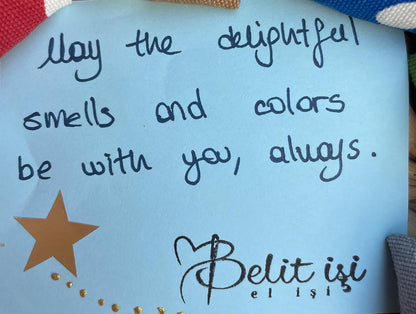 May the delightful
smells and colors
be with you, always.
Belit işi
el işi